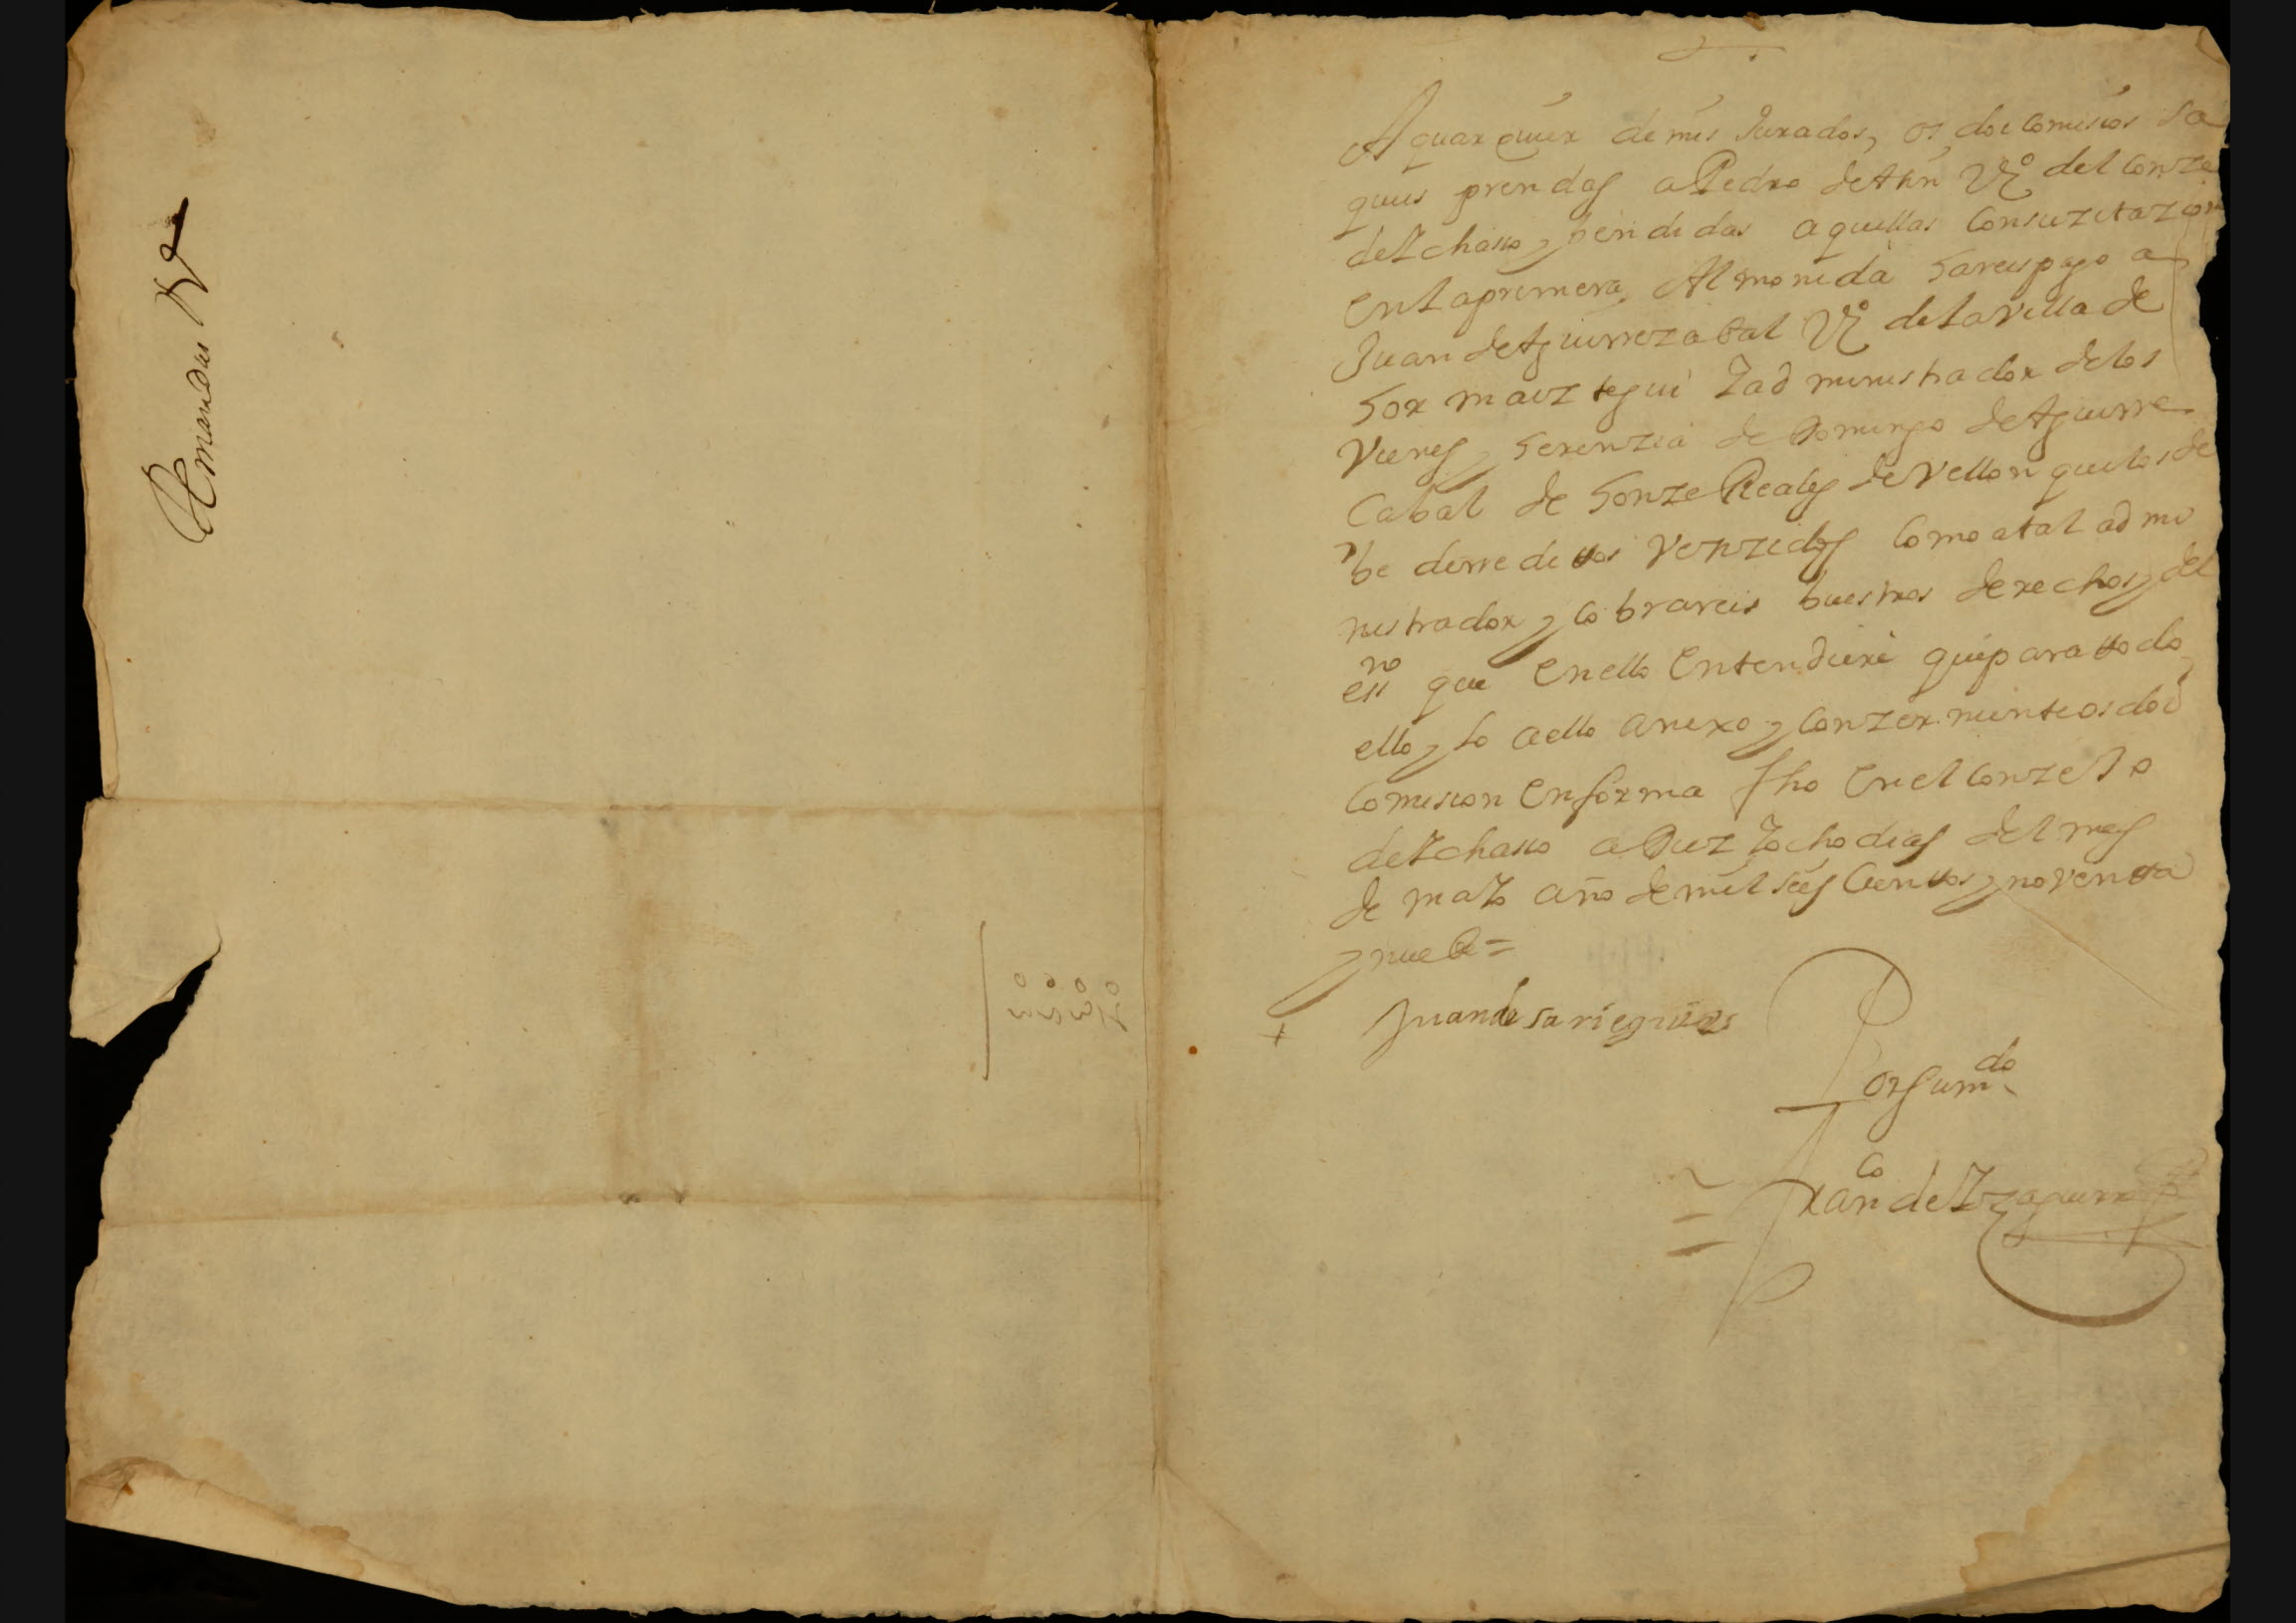 Demandas
A quarquier de mis Jurados, os doi comision sa
queis prendas a Pedro de Ahn Vº del Conze
de Ychasso, y bendidas aquellas Con su zitazion
en la primera Almoneda hareis pago a
Juan de Aguirrezabal Vº de la villa de
hormaiztegui Y administrador de los
Vienes y herenzia de Domingo de Aguirre
Cabal de honze Reales de Vellon que los de
be de rreditos Venzidos Como a tal admi
nistrador y cobrareis buestros derechos, y del
essno que en ello Entendiere que para ttodo
ello, y lo a ello anexo y Conzerniente os doi
Comision en forma fho en el Conzejo
de Ychasso a Diez Y ocho dias del mes
de mayo año de mil seis Cientos y noventa
y nuebe =
Juan de sariegui
Por su mdo
Franco de Yzaguirre